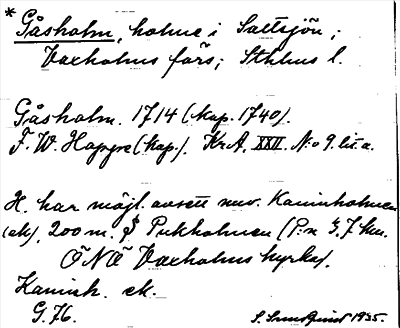 * Gåsholm, holme i Saltsjön;
Vaxholms förs; Sthlms l.
Gåsholm. 1714 (kop. 1740).
F. W. Happe (kop.). KrA. XXII. No 9. lit a.
H. har möjl. avsett nuv. Kaninholmen
(ek), 200 m. S Pukholmen (P:n 3,7 km.
ÖNÖ Vaxholms kyrka).
Kaninh. ek.
G. 76.
S. 1935.